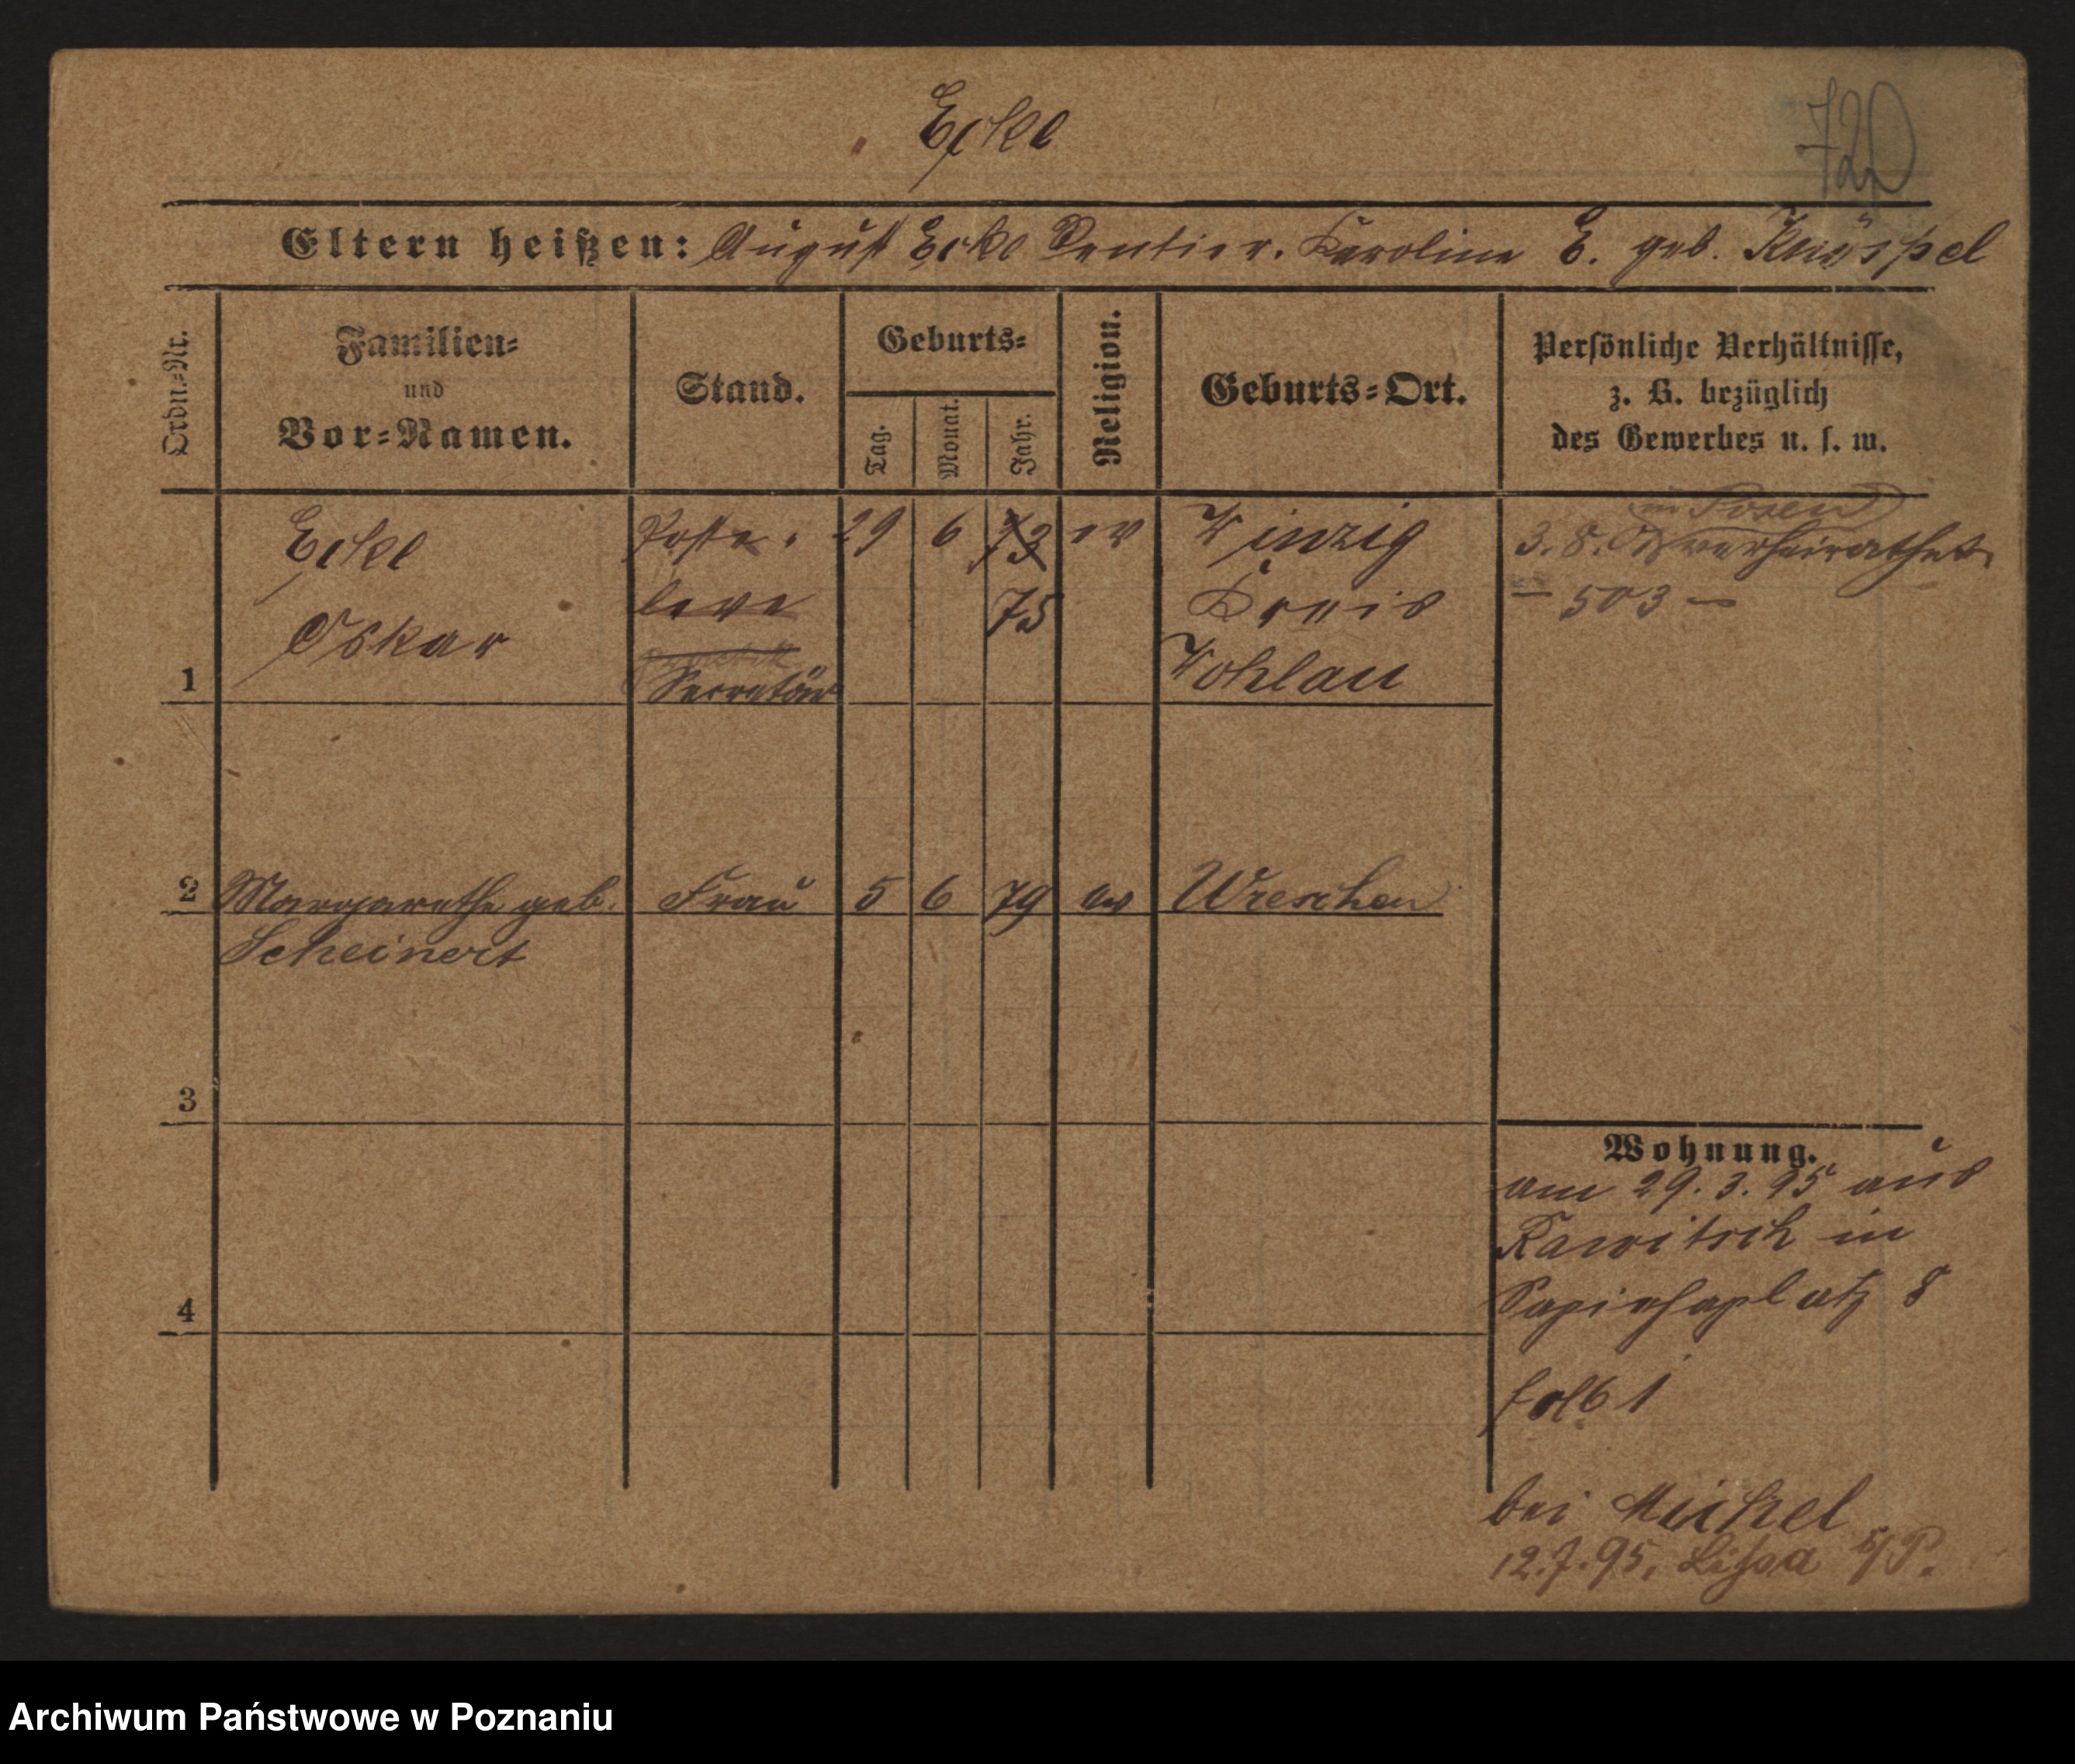 Ecke
720
Eltern heißen: August Ecke Rentier. Karoline E. geb. Knöspel
Ordn.-Nr.
Familien-
und
Vor-Namen.
Stand.
Geburts-
Tag.
Monat.
Jahr.
Religion.
Geburts-Ort.
Persönliche Verhältnisse,
z. B. bezüglich
des Gewerbes u. s. w.
1
Ecke
Oskar
Poste.
leve
Secretär
29 6 73
75
ev
Winzig
Kreis
Wohlau
in Posen
3. 8. verheirathet
503
2
Margarethe geb.
Scheinert
Frau
5 6 79 ev
Wreschen
3
4
Wohnung.
am 29. 3. 95 aus
Rawitsch in
Sapiehaplatz 8
bei Michel
12.7.95, Lissa i/P.
Archiwum Państwowe w Poznaniu